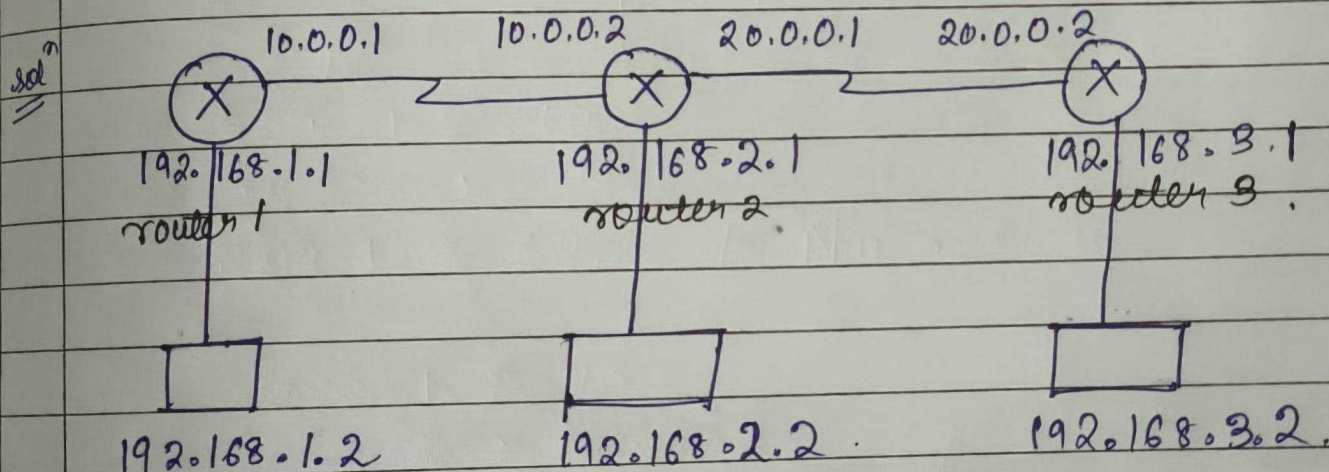 solⁿ
10.0.0.1 10.0.0.2 20.0.0.1 20.0.0.2
X X X
192.168.1.1 192.168.2.1 192.168.3.1
router 1 router 2. router 3.
192.168.1.2 192.168.2.2. 192.168.3.2.